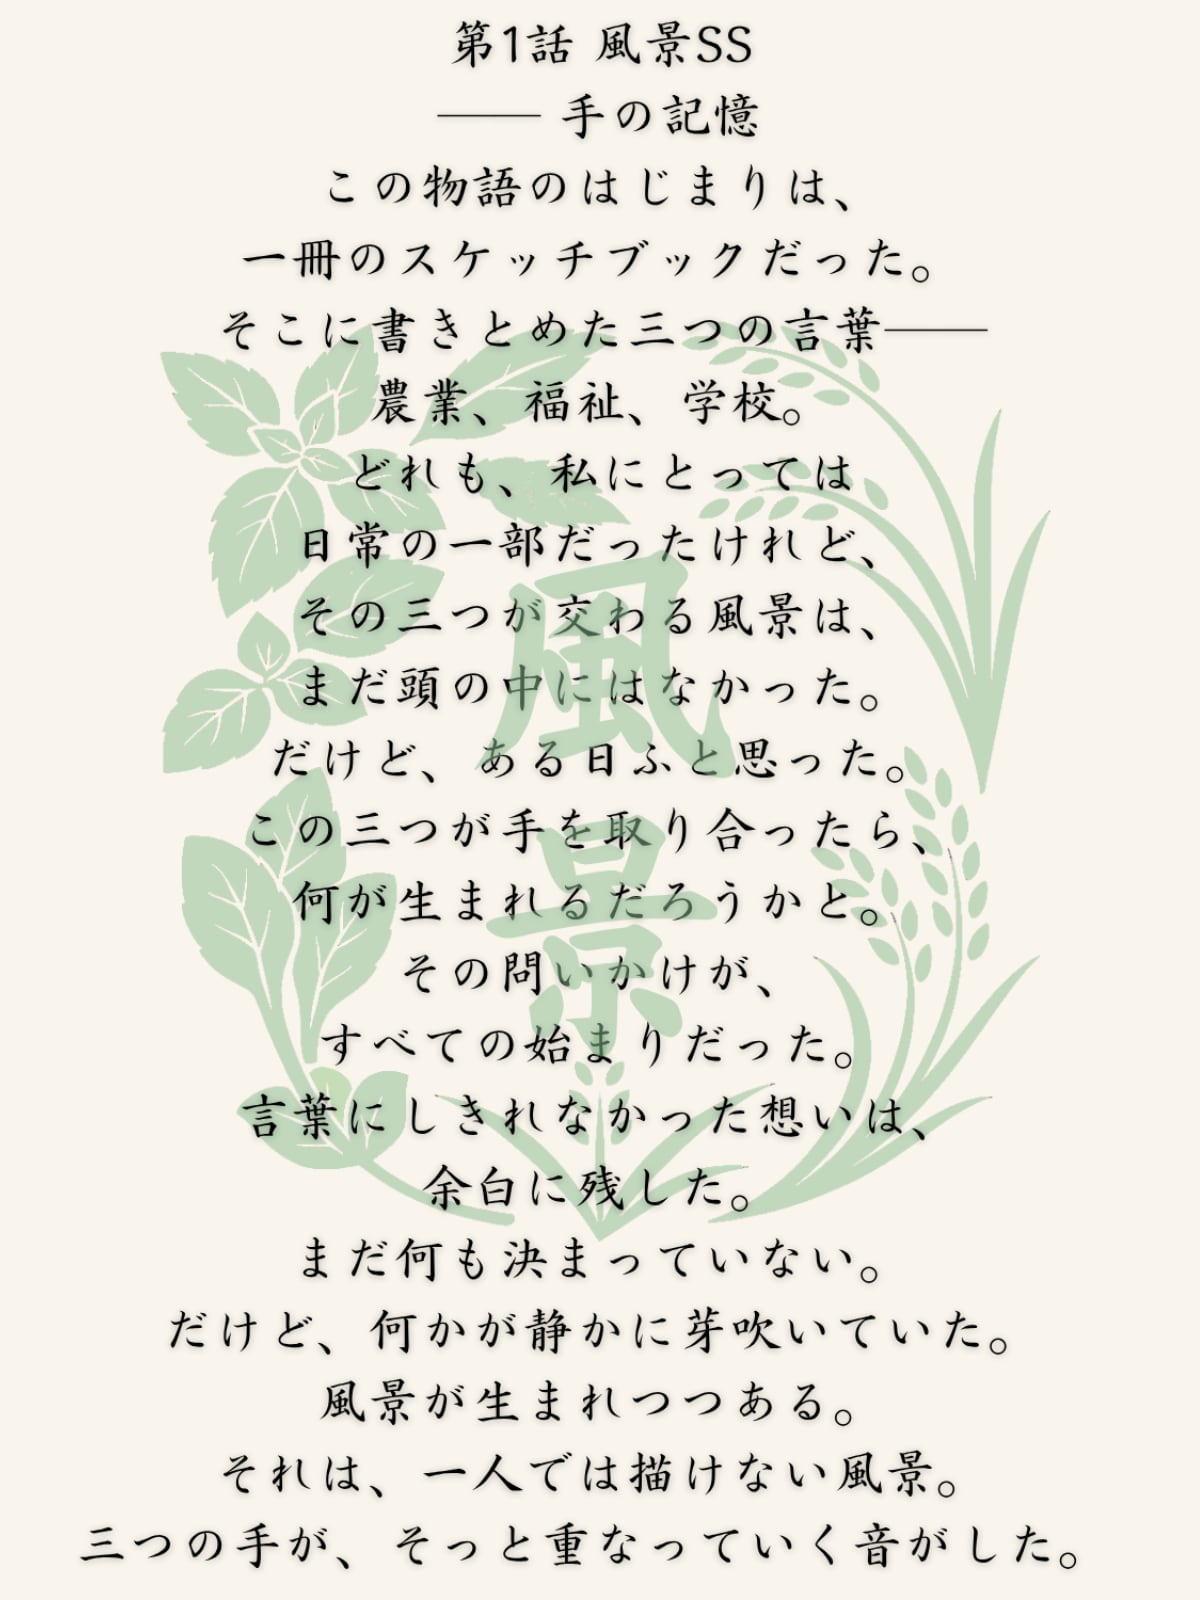 第1話 風景SS
―― 手の記憶
この物語のはじまりは、
一冊のスケッチブックだった。
そこに書きとめた三つの言葉――
農業、福祉、学校。
どれも、私にとっては
日常の一部だったけれど、
その三つが交わる風景は、
まだ頭の中にはなかった。
だけど、ある日ふと思った。
この三つが手を取り合ったら、
何が生まれるだろうかと。
その問いかけが、
すべての始まりだった。
言葉にしきれなかった想いは、
余白に残した。
まだ何も決まっていない。
だけど、何かが静かに芽吹いていた。
風景が生まれつつある。
それは、一人では描けない風景。
三つの手が、そっと重なっていく音がした。
風景